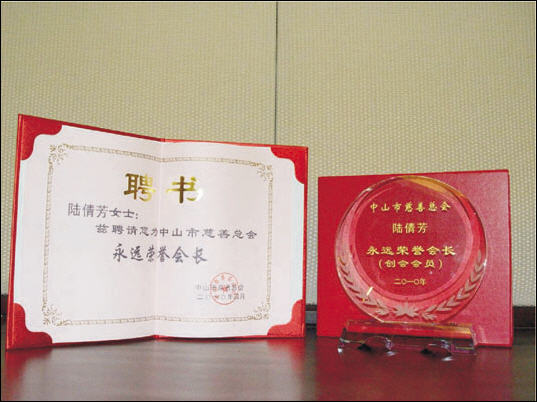 聘书
陆倩芳女士：
兹聘请您为中山市慈善总会
永远荣誉会长
中山市慈善总会
中山市慈善总会
陆倩芳
永远荣誉会长
（创会会员）
二〇一〇年